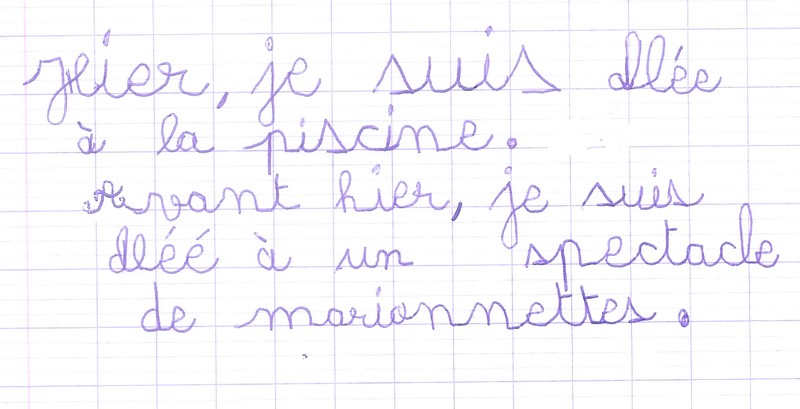 Hier, je suis allée
à la piscine.
Avant hier, je suis
alléé à un spectacle
de marionnettes.